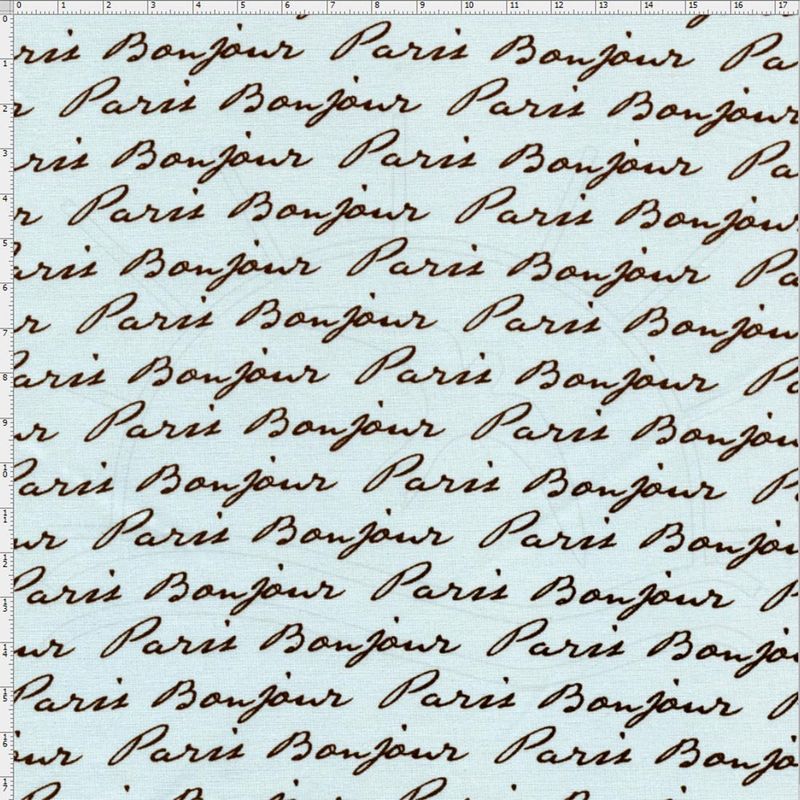 0 1 2 3 4 5 6 7 8 9 10 11 12 13 14 15 16 17
ris Bonjour Paris Bonjour Pa
r Paris Bonjour Paris Bonjour
ris Bonjour Paris Bonjour Pa
r Paris Bonjour Paris Bonjour
aris Bonjour Paris Bonjour Pa
r Paris Bonjour Paris Bonjou
aris Bonjour Paris Bonjour Pa
ur Paris Bonjour Paris Bonjou
Paris Bonjour Paris Bonjour P
ur Paris Bonjour Paris Bonjou
Paris Bonjour Paris Bonjour P
ur Paris Bonjour Paris Bonjo
Paris Bonjour Paris Bonjour P
our Paris Bonjour Paris Bonjo
0
1
2
3
4
5
6
7
8
9
10
11
12
13
14
15
16
17